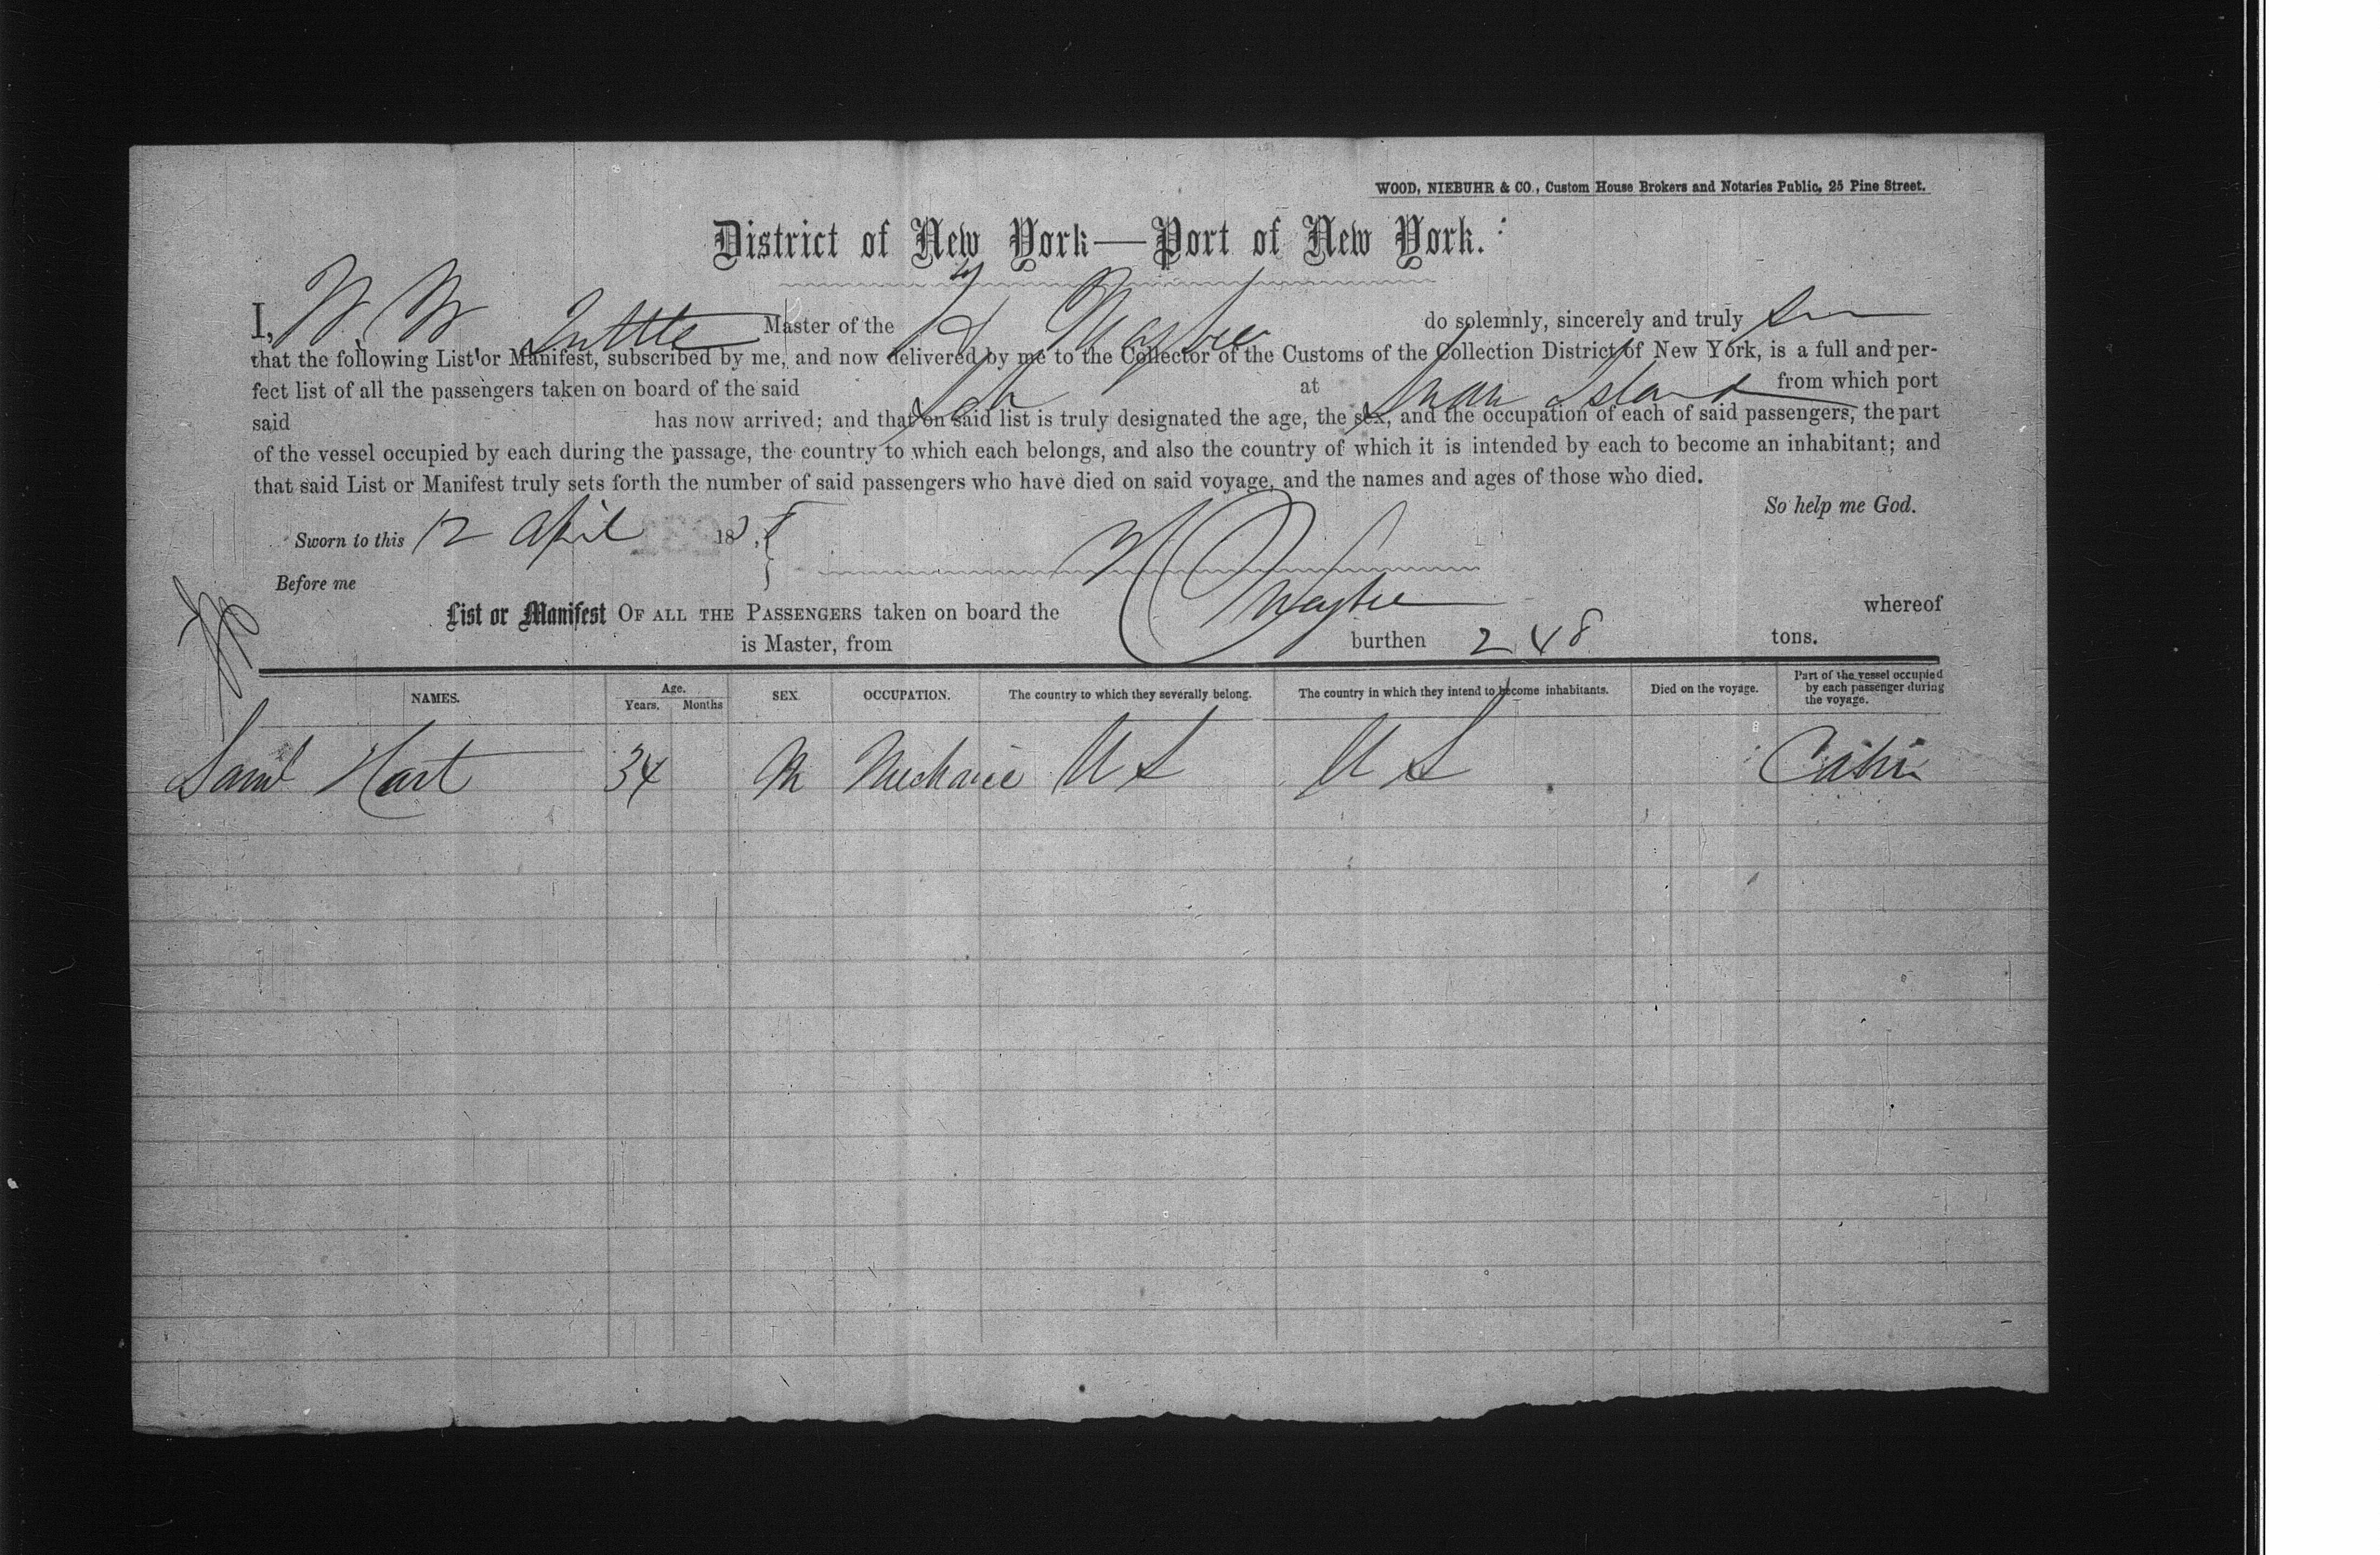 WOOD, NIEBUHR & CO., Custom House Brokers and Notaries Public, 25 Pine Street.
District of New York—Port of New York.
I, W W Tuttle Master of the H Maybee do solemnly, sincerely and truly
that the following List or Manifest, subscribed by me, and now delivered by me to the Collector of the Customs of the Collection District of New York, is a full and per-
fect list of all the passengers taken on board of the said Sch at Swan Island from which port
said has now arrived; and that on said list is truly designated the age, the sex, and the occupation of each of said passengers, the part
of the vessel occupied by each during the passage, the country to which each belongs, and also the country of which it is intended by each to become an inhabitant; and
that said List or Manifest truly sets forth the number of said passengers who have died on said voyage, and the names and ages of those who died.
So help me God.
Sworn to this 12 April 18
Before me
List or Manifest OF ALL THE PASSENGERS taken on board the whereof
is Master, from burthen 248 tons.
NAMES. Age. Years. Months SEX. OCCUPATION. The country to which they severally belong. The country in which they intend to become inhabitants. Died on the voyage. Part of the vessel occupied by each passenger during the voyage.
Saml Hart 34 M Mechanic U S U S Cabin